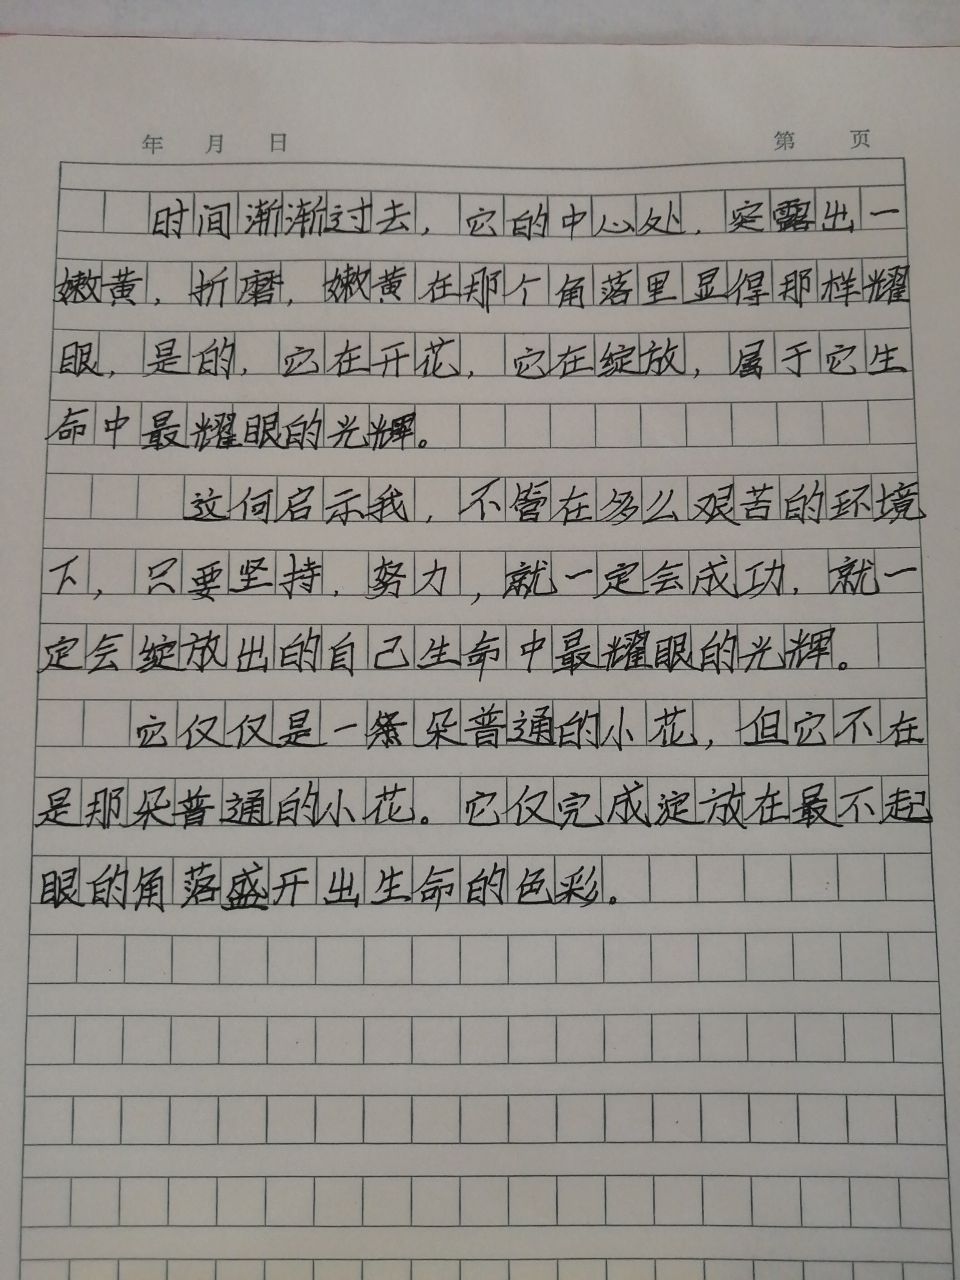 年 月 日 第 页
时间渐渐过去，它的中心处，突露出一
嫩黄，折磨，嫩黄在那个角落里显得那样耀
眼，是的，它在开花，它在绽放，属于它生
命中最耀眼的光辉。
这何启示我，不管在多么艰苦的环境
下，只要坚持，努力，就一定会成功，就一
定会绽放出的自己生命中最耀眼的光辉。
它仅仅是一条朵普通的小花，但它不在
是那朵普通的小花。它仅完成淀放在最不起
眼的角落盛开出生命的色彩。